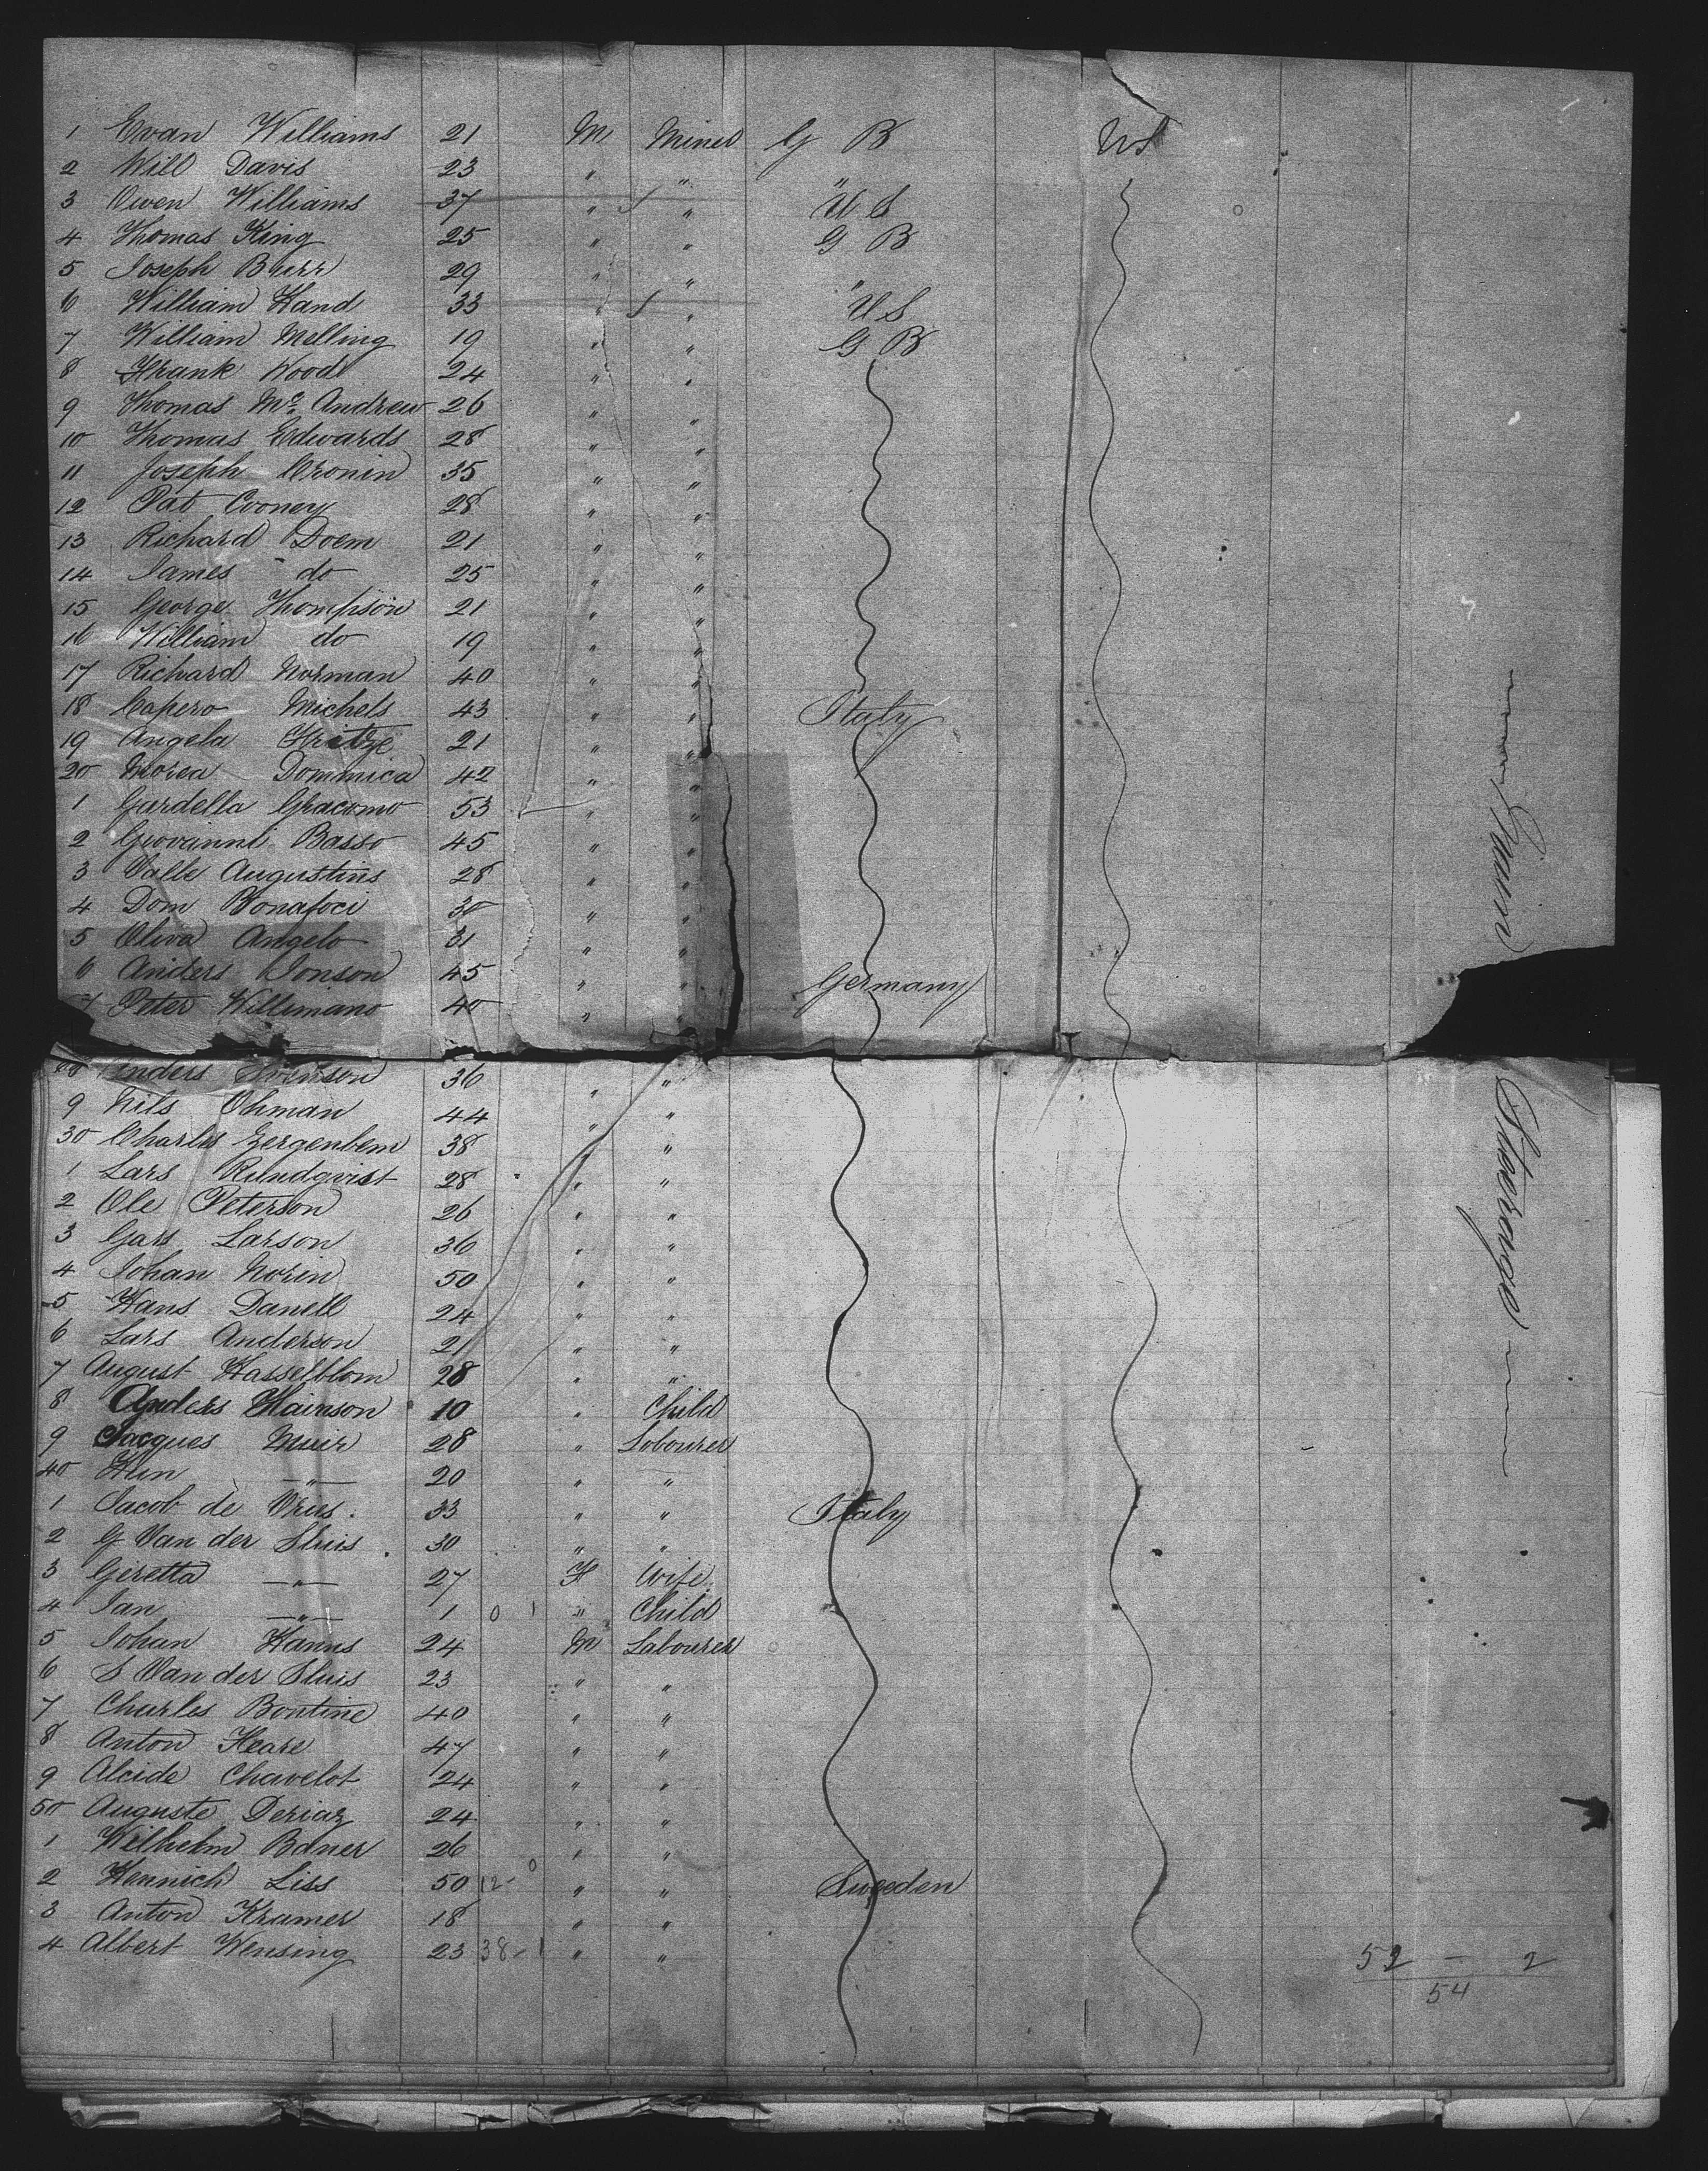 1 Evan Williams 21 M Miner G B US
2 Will Davis 23 " " "
3 Owen Williams 37 " " U S
4 Thomas King 25 " " G B
5 Joseph Burr 29 " " "
6 William Hand 33 " " U S
7 William Melling 19 " " G B
8 Frank Wood 24 " "
9 Thomas Mc Andrew 26 " "
10 Thomas Edwards 28 " "
11 Joseph Cronin 35 " "
12 Pat Cooney 28 " "
13 Richard Doem 21 " "
14 James do 25 " "
15 George Thompson 21 " "
16 William do 19 " "
17 Richard Norman 40 " "
18 Capero Michels 43 " " Italy
19 Angela 21 " "
20 Morea Dominica 42 " "
1 Gardella Giacomo 53 " "
2 Giovanni Basso 45 " "
3 Valle Augustins 28 " "
4 Dom Bonafoci 30 " "
5 Oliva Angelo 31 " "
6 Anders Jonson 45 " " Germany
7 Peter Willimano 40 " "
Anders Svenson 36 " "
9 Nils Ohman 44 " "
30 Charles Gergenbem 38 " "
1 Lars Rundqvist 28 " "
2 Ole Peterson 26 " "
3 Gars Larson 36 " "
4 Johan Noren 50 " "
5 Hans Danell 24 " "
6 Lars Anderson 21 " "
7 August Hasselblom 28 " "
8 Anders Hainson 10 " Child
9 Jacques Muir 28 " Labourer
40 —"— 20 " "
1 Jacob de Vries 33 " " Italy
2 G Van der Sluis 30 " "
3 Geretta —"— 27 F Wife
4 Jan —"— 1 0 1 " Child
5 Johan Hanns 24 M Labourer
6 S Van der Sluis 23 " "
7 Charles Bontine 40 " "
8 Anton Heare 47 " "
9 Alcide Chavelot 24 " "
50 Auguste Deriaz 24 " "
1 Wilhelm Bdner 26 " "
2 Hennich Liss 50 12- 0 " " Sweeden
3 Anton Kramer 18 " "
4 Albert Wensing 23 38-1 " "
52 — 2
54
Steerage